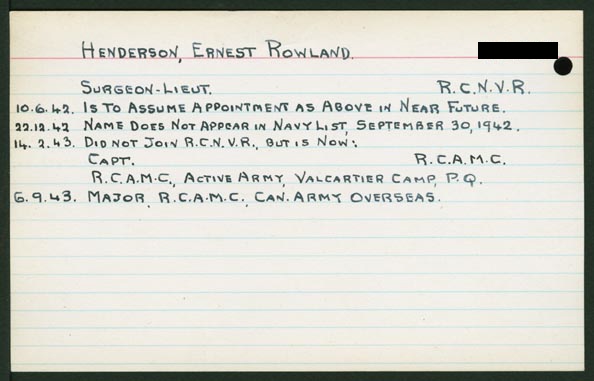 HENDERSON, ERNEST ROWLAND.
SURGEON-LIEUT. R.C.N.V.R.
10.6.42. IS TO ASSUME APPOINTMENT AS ABOVE IN NEAR FUTURE.
22.12.42 NAME DOES NOT APPEAR IN NAVY LIST, SEPTEMBER 30, 1942.
14.2.43. DID NOT JOIN R.C.N.V.R., BUT IS NOW:
CAPT. R.C.A.M.C.
R.C.A.M.C., ACTIVE ARMY, VALCARTIER CAMP, P.Q.
6.9.43. MAJOR, R.C.A.M.C., CAN. ARMY OVERSEAS.